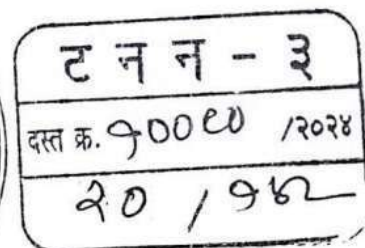 ट न न - ३
दस्त क्र. १००९० /२०२४
२० / १४२